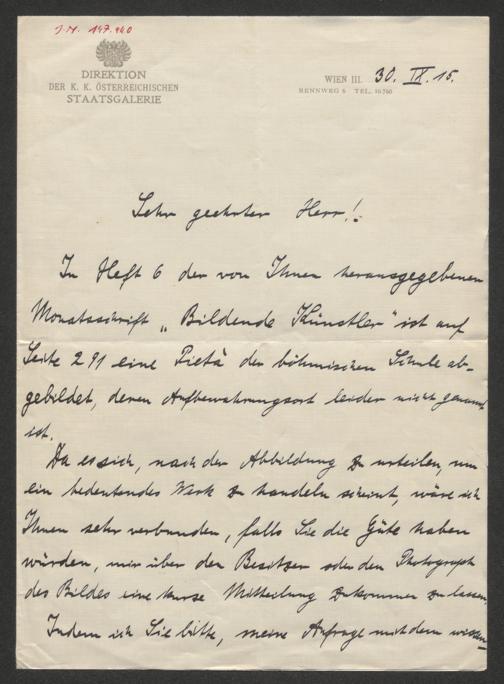 J.N. 147.940
DIREKTION
DER K. K. ÖSTERREICHISCHEN
STAATSGALERIE
WIEN III. 30. IX. 15.
RENNWEG 6 TEL.
Sehr geehrter Herr!
In Heft 6 der von Ihnen herausgegebenen
Monatsschrift „Bildende Künstler" ist auf
Seite 291 eine Pietà der böhmischen Schule ab-
gebildet, deren Aufbewahrungsort leider nicht genannt
ist.
Da es sich, nach der Abbildung zu urteilen, um
ein bedeutendes Werk zu handeln scheint, wäre ich
Ihnen sehr verbunden, falls Sie die Güte haben
würden, mir über den Besitzer oder den Photograph
des Bildes eine kurze Mitteilung zukommen zu lassen.
Indem ich Sie bitte, meine Anfrage mit dem wissen-